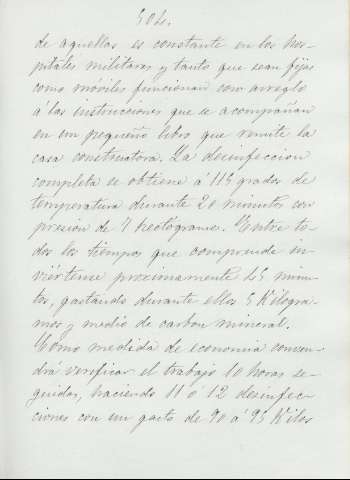 504.
de aquellas es constante en los hos-
pitales militares y tanto que sean fijas
como móviles funcionan con arreglo
á las instrucciones que se acompañan
en un pequeño libro que remite la
casa constructora. La desinfeccion
completa se obtiene á 115 grados de
temperatura durante 20 minutos con
presion de 7 hectogramos. Entre to-
dos los tiempos que comprende in-
viértense proximamente 45 minu-
tos, gastando durante ellos 5 Kilogra-
mos y medio de carbon mineral.
Como medida de economia conven-
drá verificar el trabajo 10 horas se-
guidas, haciendo 11 ó 12 desinfec-
ciones con un gasto de 90 á 95 Kilos